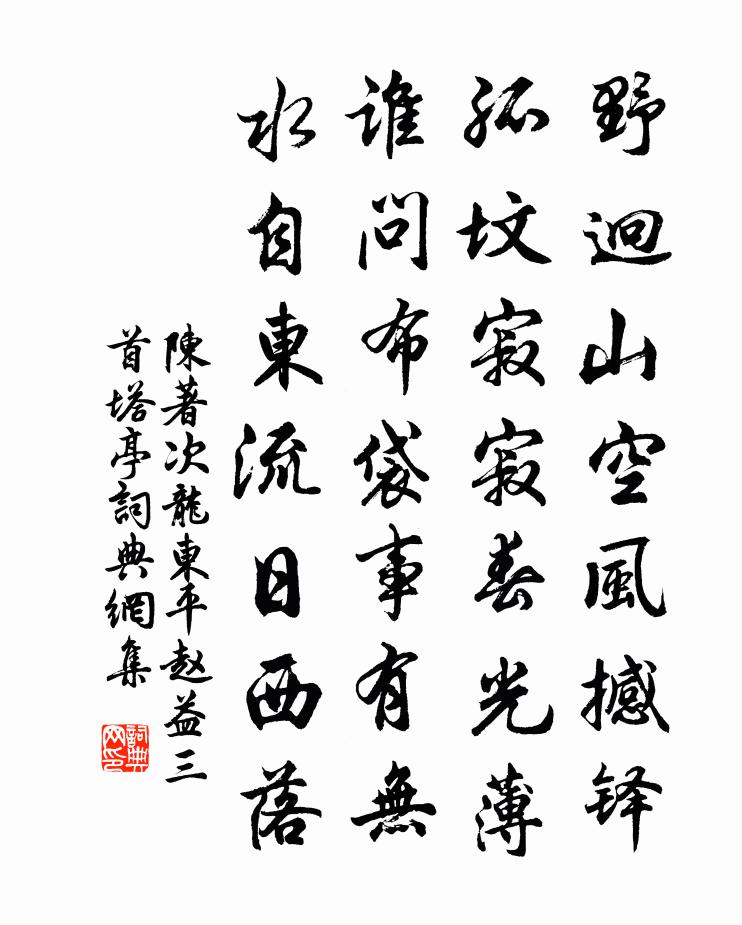 野迥山空風撼铎
孤坟寂寂春光薄
誰問布袋事有無
水自東流日西落
陳著次龍東平赵益三
首塔亭詞典網集
詞典网印